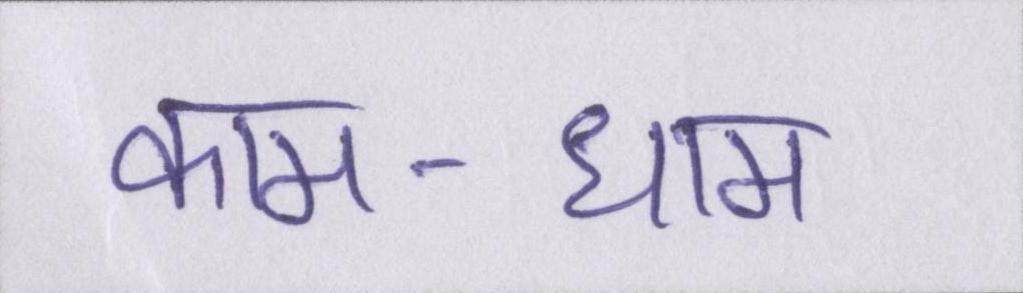 काम - धाम